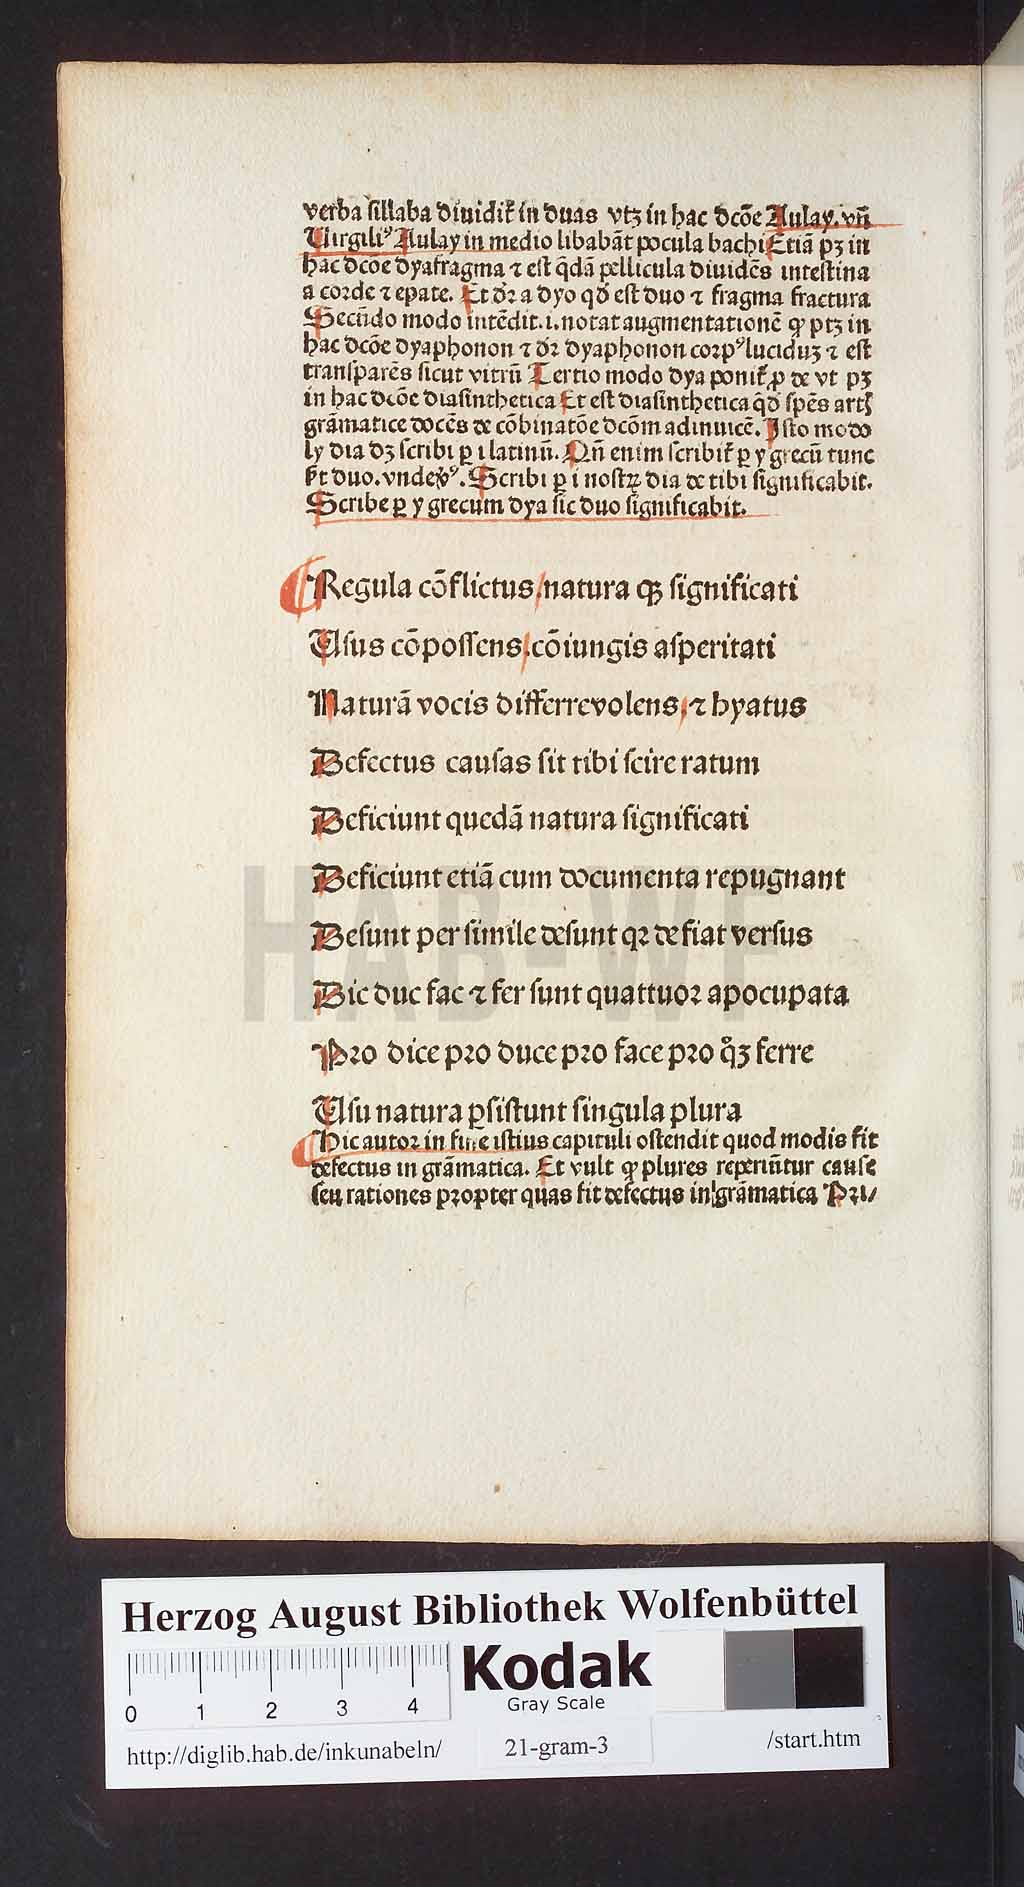 verba sillaba diuidit᷑ in duas vtʒ in hac dcōe Aulay. vn̄
Uirgiliꝰ Aulay in medio libabāt pocula bachi Etiā pʒ in
hac dcōe dyafragma ⁊ est q̄dā pellicula diuidēs intestina
a corde ⁊ epate. Et dr̄ a dyo qd̄ est duo ⁊ fragma fractura
Secūdo modo intēdit .i. notat augmentationē ꝙ ptʒ in
hac dcōe dyaphonon ⁊ dr̄ dyaphonon corpꝰ luciduʒ ⁊ est
transparēs sicut vitrū Tertio modo dya ponit᷑ ꝓ de vt pʒ
in hac dcōe diasinthetica Et est diasinthetica qd̄ spēs artꝭ
grāmatice docēs de cōbinatōe dcōm adinuicē. Isto modo
ly dia dʒ scribi ꝑ i latinū. Qn̄ enim scribit᷑ ꝑ y grecū tunc
fit duo. vnde
Scribi ꝑ i nostꝝ dia de tibi significabit.
Scribe ꝑ y grecum dya sic duo significabit.
Regula cōflictus / natura qꝫ significati
Usus cōpossens / cōiungis asperitati
Naturā vocis differre volens / ⁊ hyatus
Defectus causas sit tibi scire ratum
Deficiunt quedā natura significati
Deficiunt etiā cum documenta repugnant
Desunt per simile desunt qꝛ defiat versus
Dic duc fac ⁊ fer sunt quattuor apocupata
Pro dice pro duce pro face pro qꝫ ferre
Usu natura ꝑsistunt singula plura
Hic autor in fine istius capituli ostendit quod modis fit
defectus in grāmatica. Et vult ꝙ plures reperiūtur cause
seu rationes propter quas fit defectus in grāmatica Pri/
HAB-WF
Herzog August Bibliothek Wolfenbüttel
0 1 2 3 4
Kodak
Gray Scale
http://diglib.hab.de/inkunabeln/ 21-gram-3 /start.htm